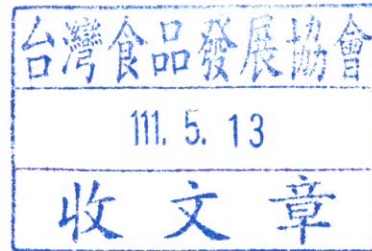 台灣食品發展協會
111. 5. 13
收文章